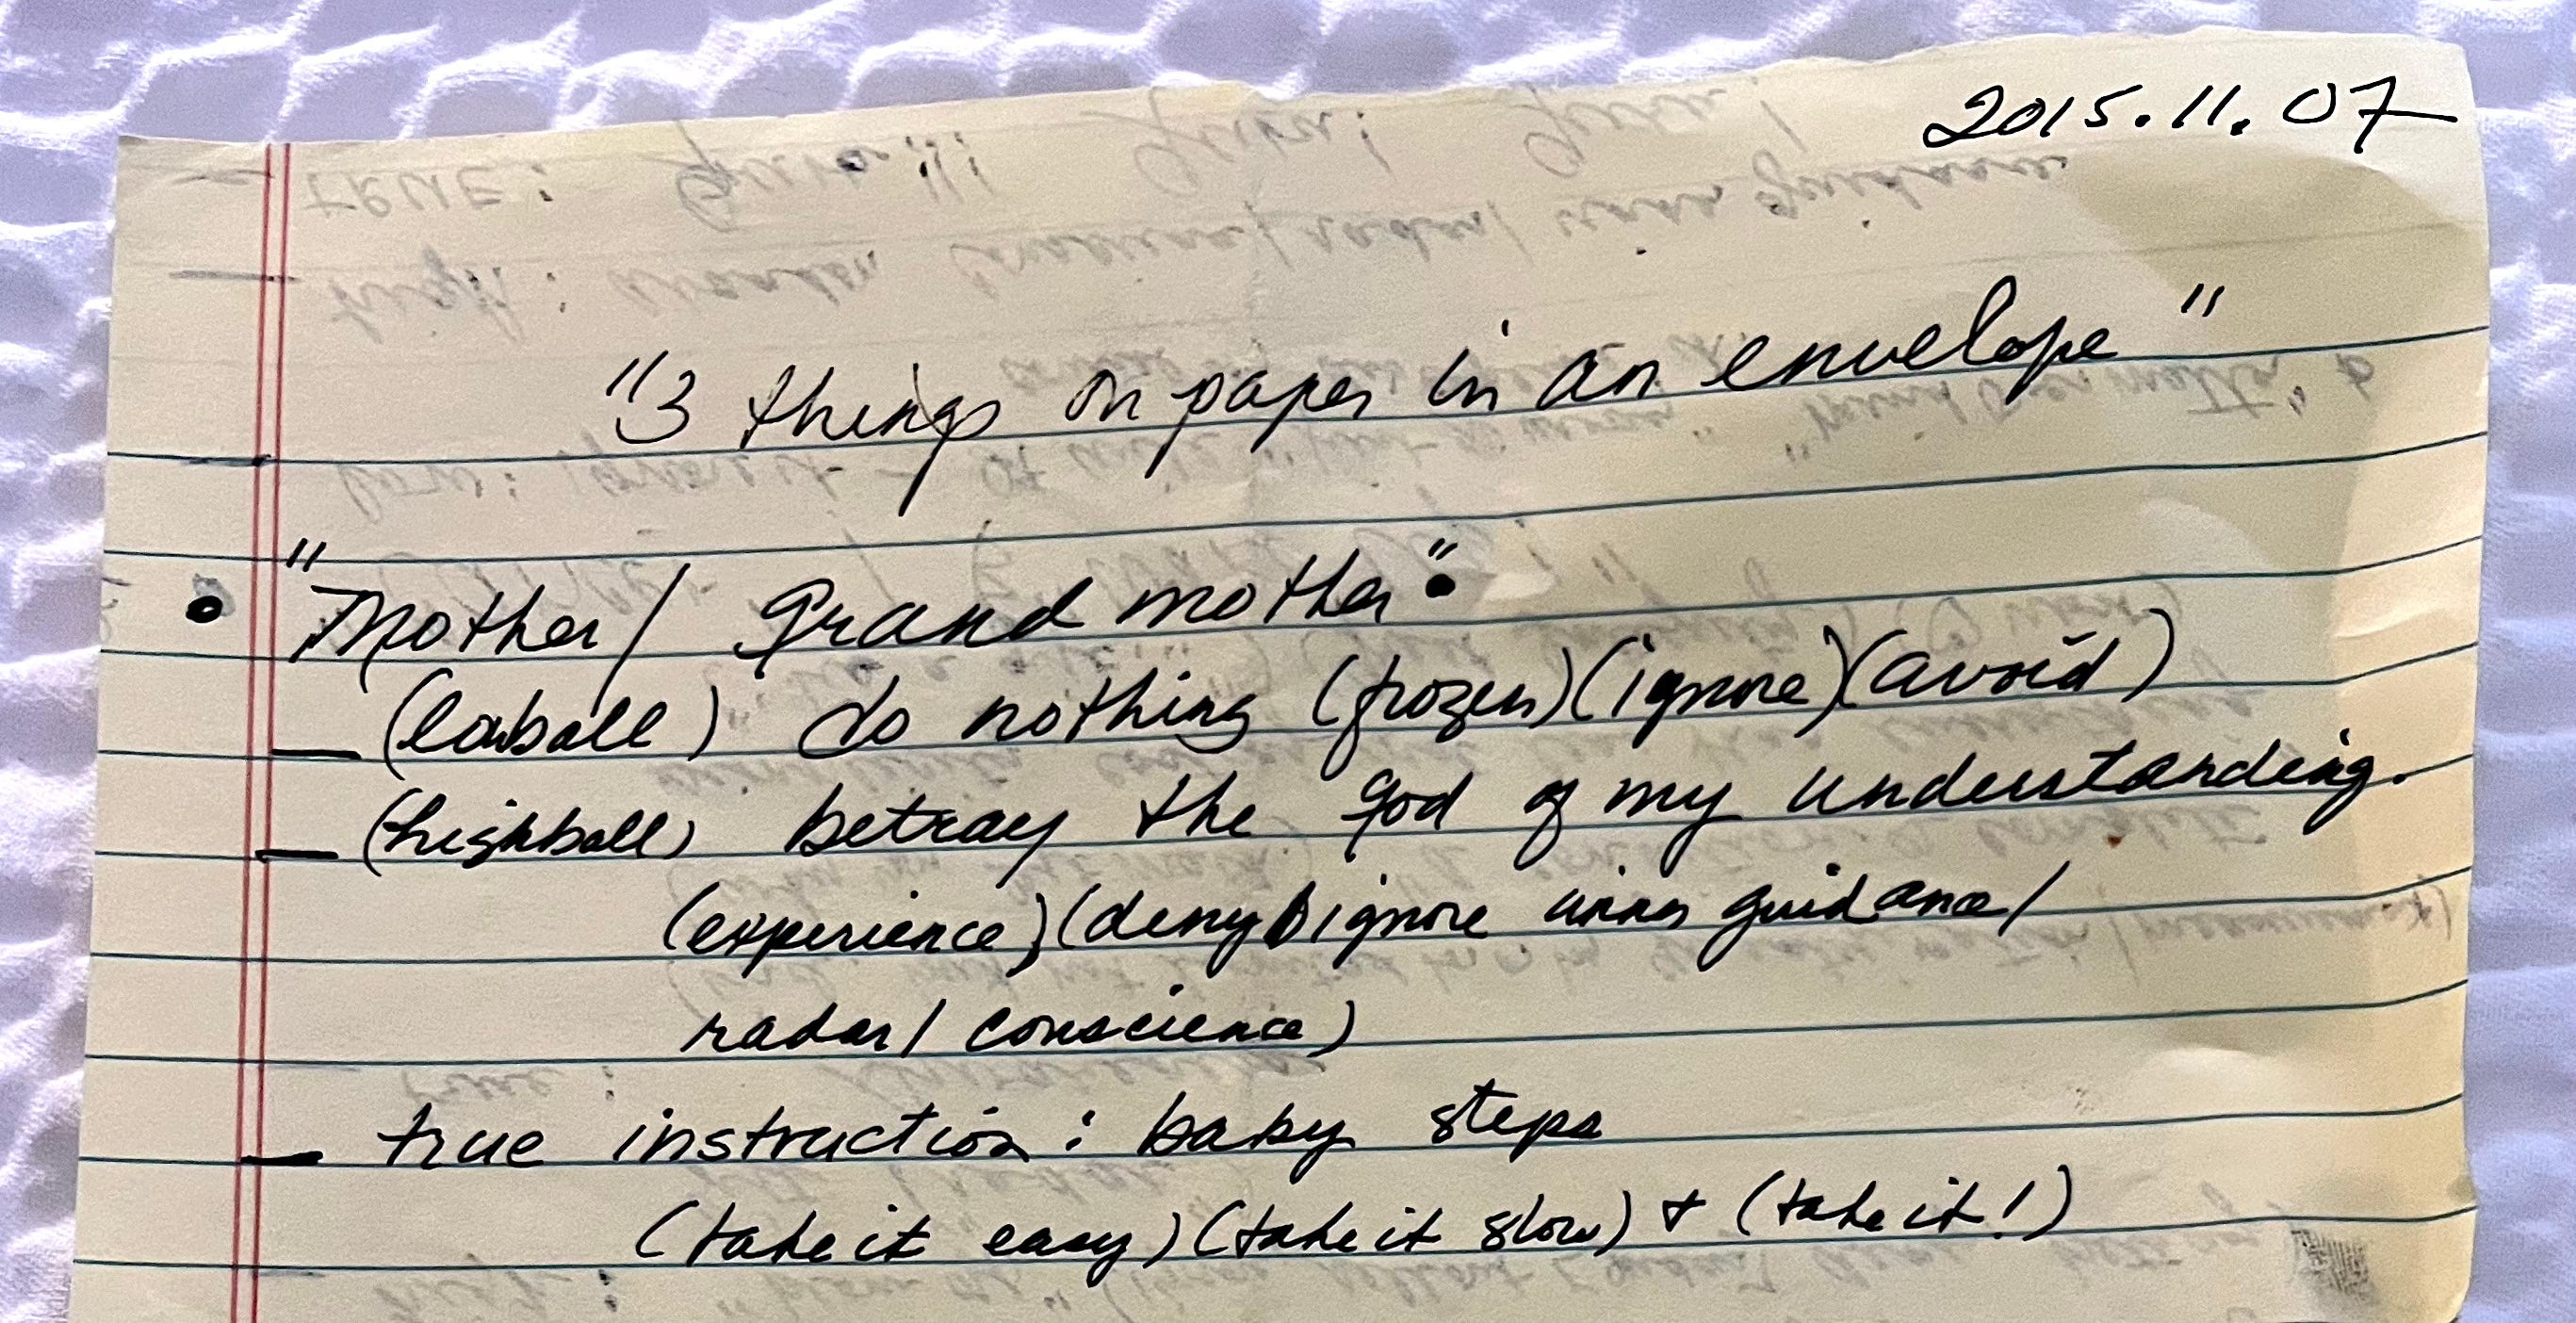 2015.11.07
"3 things on paper in an envelope"
• "Mother/ Grandmother":
— (lowball) do nothing (frozen)(ignore)(avoid)
— (highball) betray the god of my understanding.
(experience)(deny & ignore inner guidance/
radar/ conscience)
— true instruction: baby steps
(take it easy)(take it slow) + (take it!)